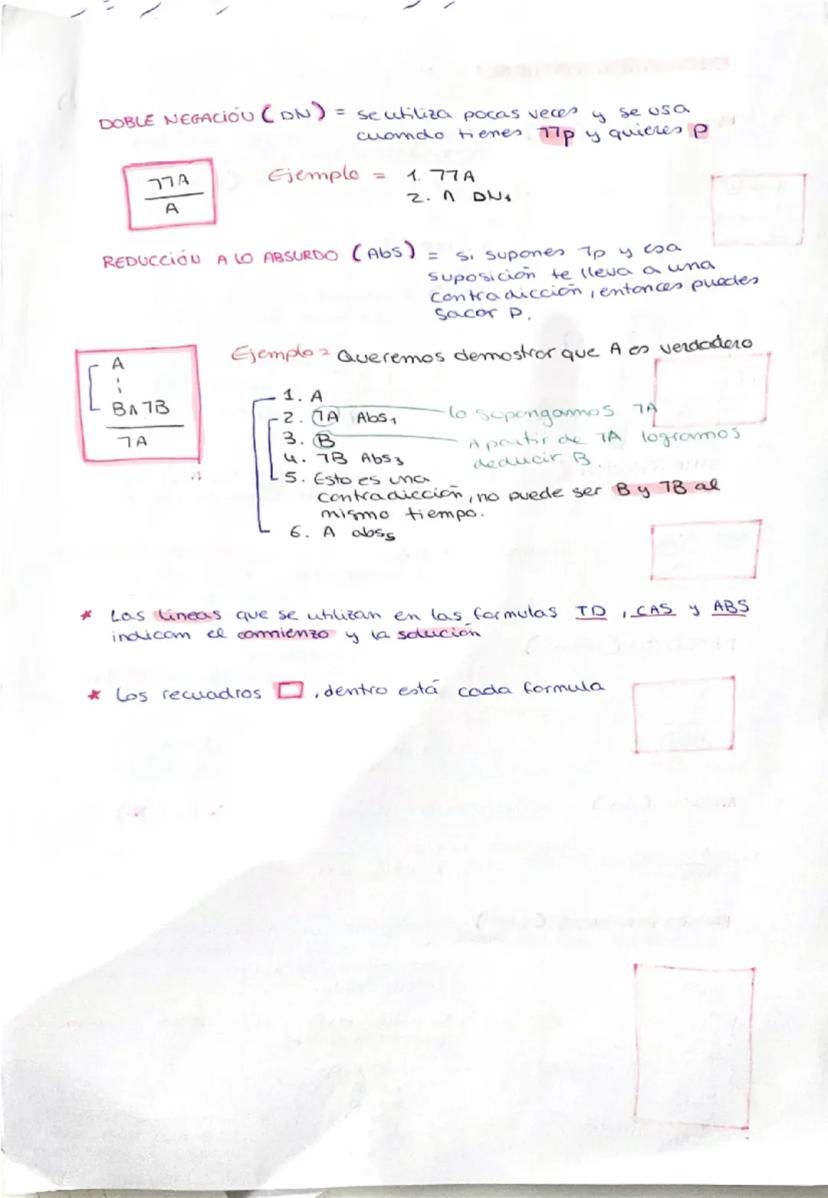 DOBLE NEGACIÓN (DN) = se utiliza pocas veces y se usa
cuando tienes ㄱㄱp y quieres p
ㄱㄱA
A
Ejemplo = 1. ㄱㄱA
2. A DN₁
REDUCCIÓN A LO ABSURDO (Abs) = si supones ㄱp y esa
suposición te lleva a una
contradicción, entonces puedes
sacar p.
A
B∧ㄱB
ㄱA
Ejemplo = Queremos demostrar que A es verdadero
1. A
2. ㄱA Abs₁ lo supongamos ㄱA
3. B A partir de ㄱA logramos
deducir B
4. ㄱB Abs₃
5. Esto es una
contradicción, no puede ser B y ㄱB al
mismo tiempo.
6. A abs₅
* Las líneas que se utilizan en las formulas TD, CAS y ABS
indican el comienzo y la solución
* Los recuadros □, dentro está cada formula